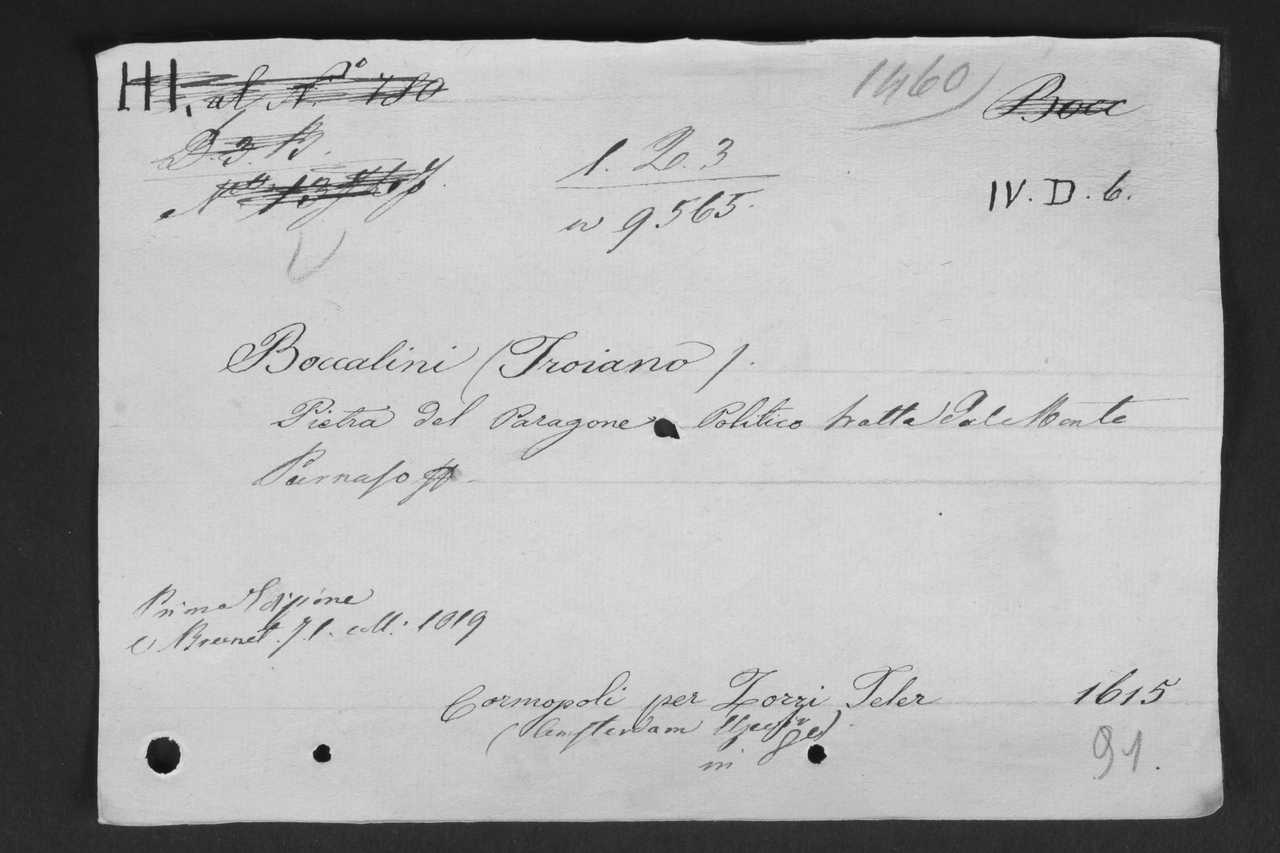 III. al N.° 180
1460
Bocc
D. 3. B.
1. Q. 3
IV. D. 6.
n 9.565.
Boccalini (Troiano).
Pietra del Paragone Politico tratta dal Monte
Parnaso
Prima Edizione
v Brunet. T. 1. coll: 1019
Cormopoli per Zorzi Teler 1615
(Amsterdam
in 8°
91.